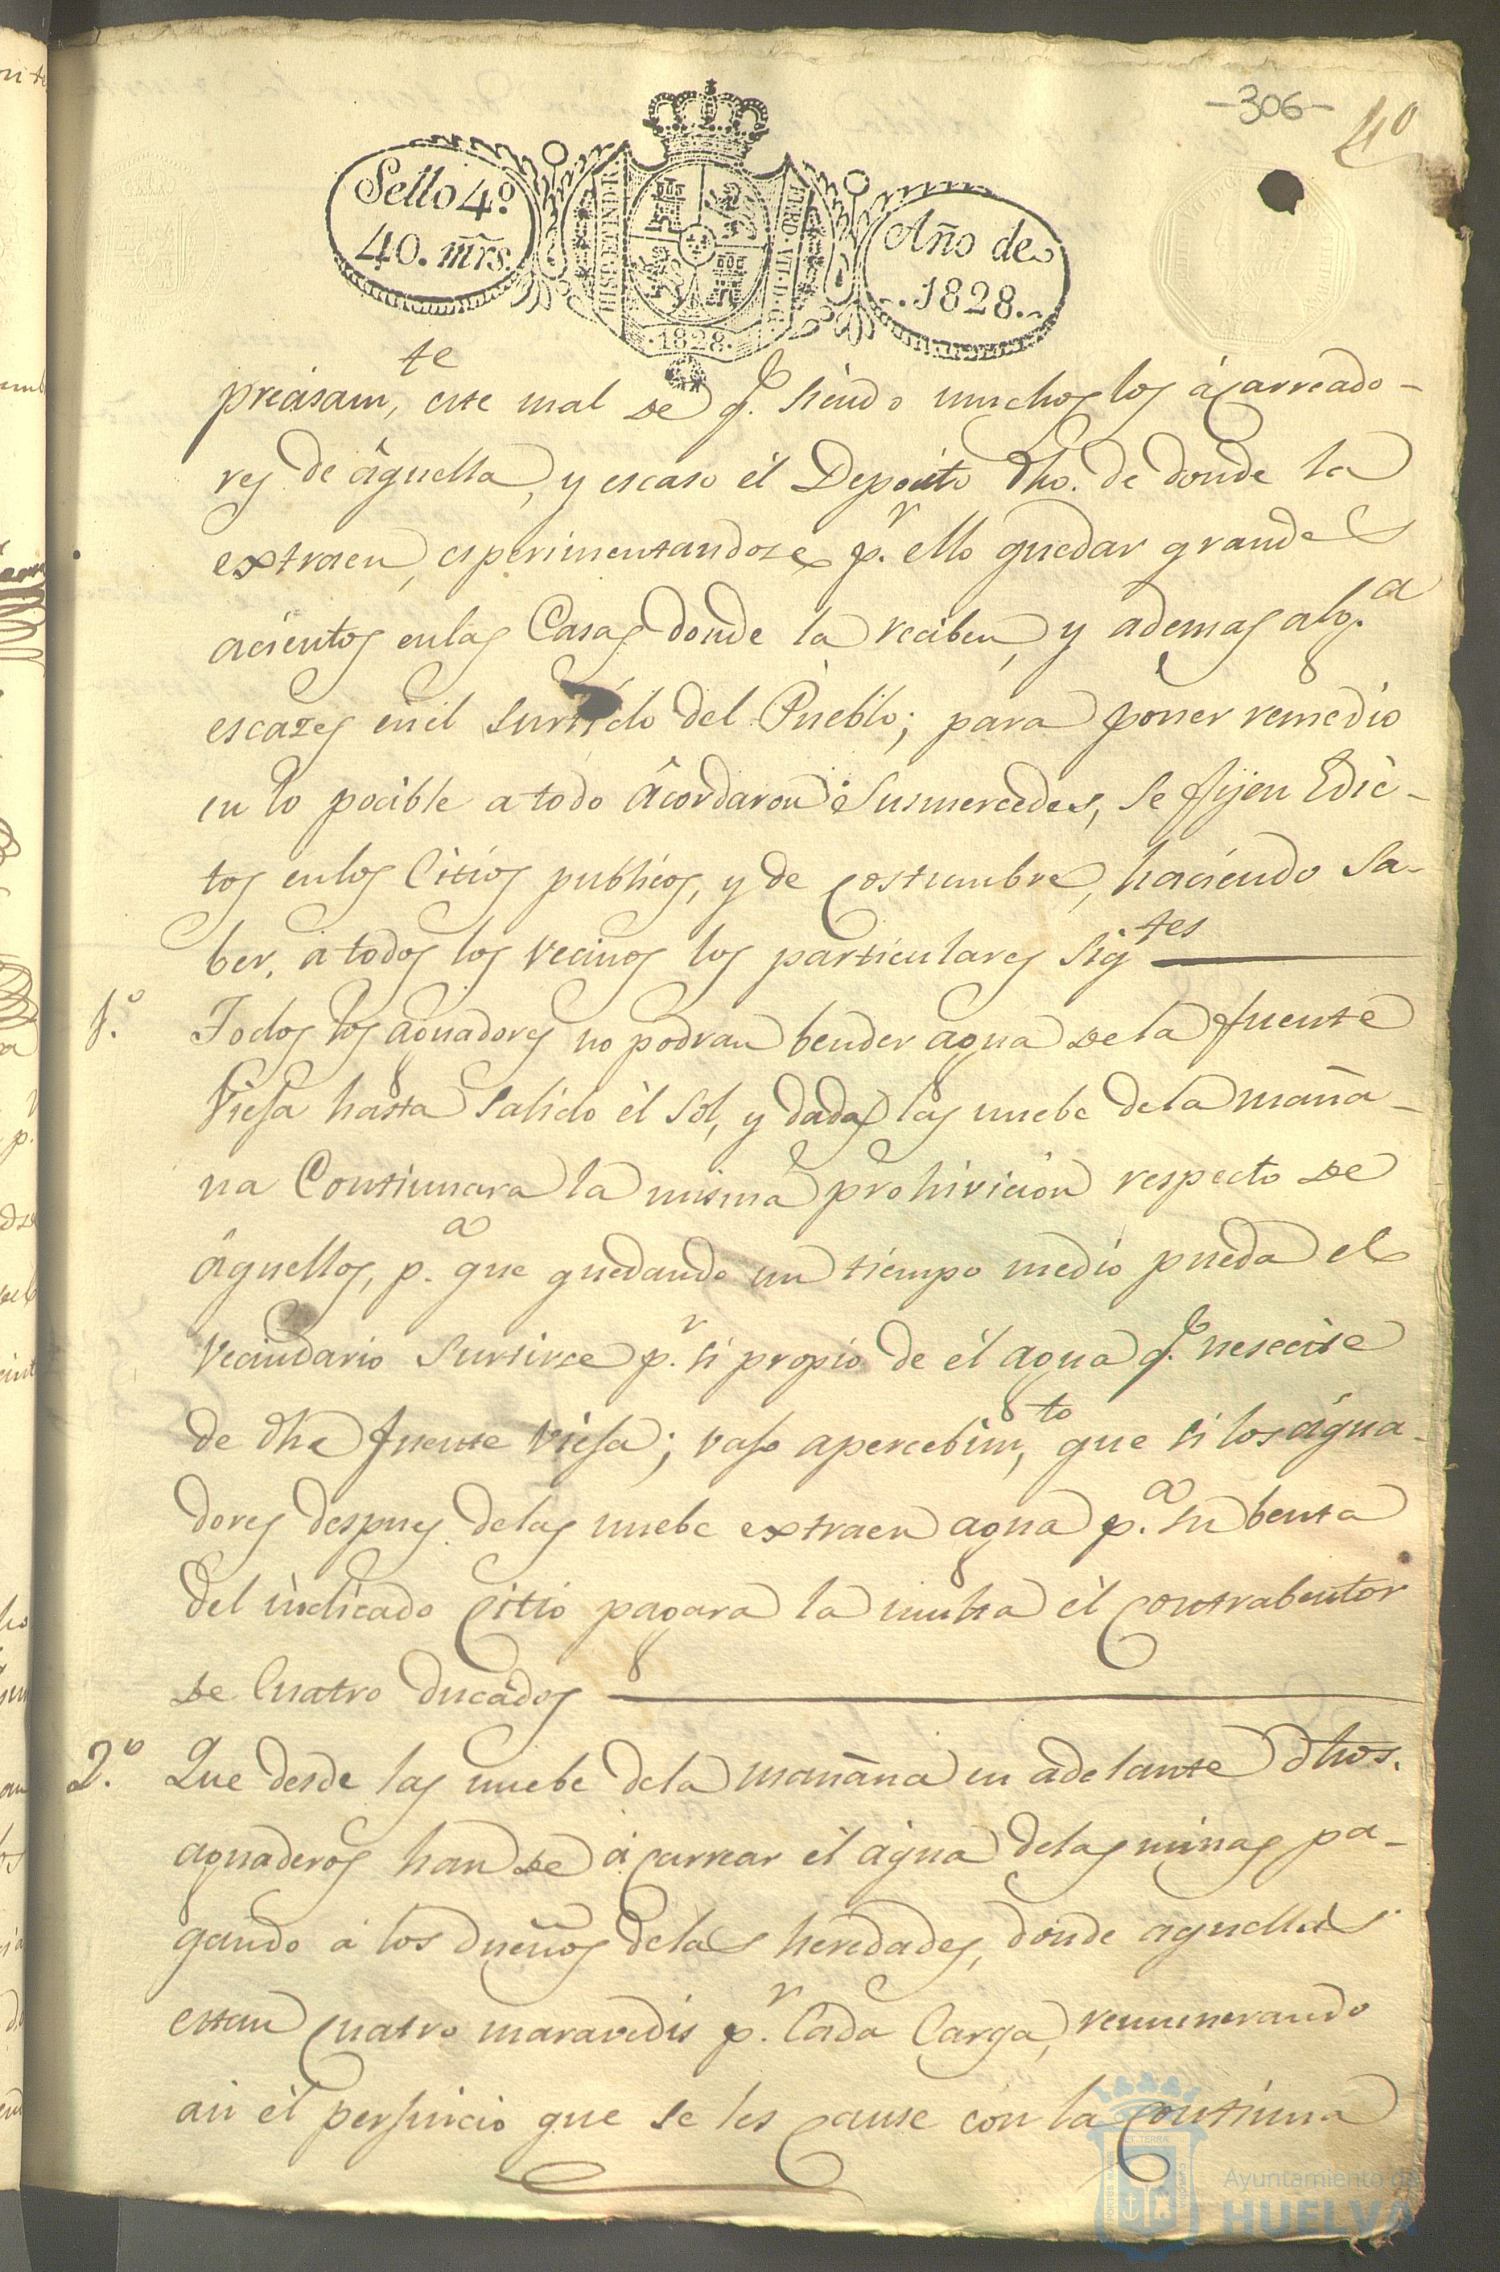 -306-
40
Sello 4º.
40. mrs.
HISP. ET IND. R.
FERD. VII. D. G.
.1828.
Año de
.1828.
precisamte, este mal de q.e siendo muchos los ácarreado-
res de áquella, y escaso él Deposito dho. de donde la
extraen, esperimentandoze p.r ello quedar grandes
acientos en las Casas donde la reciben, y ademas alg.a
escazes en él surtido del Pueblo; para poner remedio
en lo pocible a todo ácordaron Susmercedes, se fijen Edic-
tos en los Citios publicos, y de costumbre, haciendo sa-
ber, a todos los vecinos los particulares sigtes
1.º Todos los aguadores no podran bender agua de la fuente
Viefa hasta salido él sol, y dadas las nuebe de la maña-
na Continuara la misma prohivicion respecto de
áquellos, p.a que quedando un tiempo medio pueda el
Vecindario surtirce p.r si propio de él agua q.e nesecite
de dha fuente viefa; vafo apercebimto, que si los água-
dores despues de las nuebe extraen agua p.a su benta
del indicado Citio pagara la multa él contrabentor
de Cuatro ducados
2.º Que desde las nuebe de la mañana en adelante dhos.
aguaderos han de ácarrear él ágüa de las minas pa-
gando á los dueños de las heredades, donde aquellas
estan cuatro maravedis p.r Cada Carga, remunerando
asi él perfuicio que se les cause con la continua
Ayuntamiento de
HUELVA